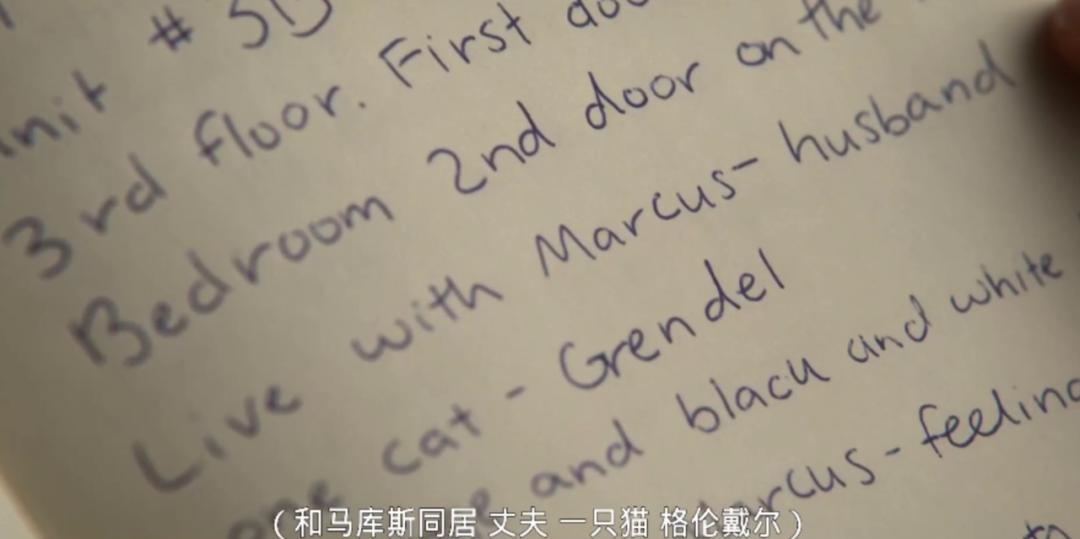 # 5B
3rd floor. First
Bedroom 2nd door on the
Live with Marcus - husband
one cat - Grendel
and black and white
Marcus - feeling
(和马库斯同居 丈夫 一只猫 格伦戴尔)